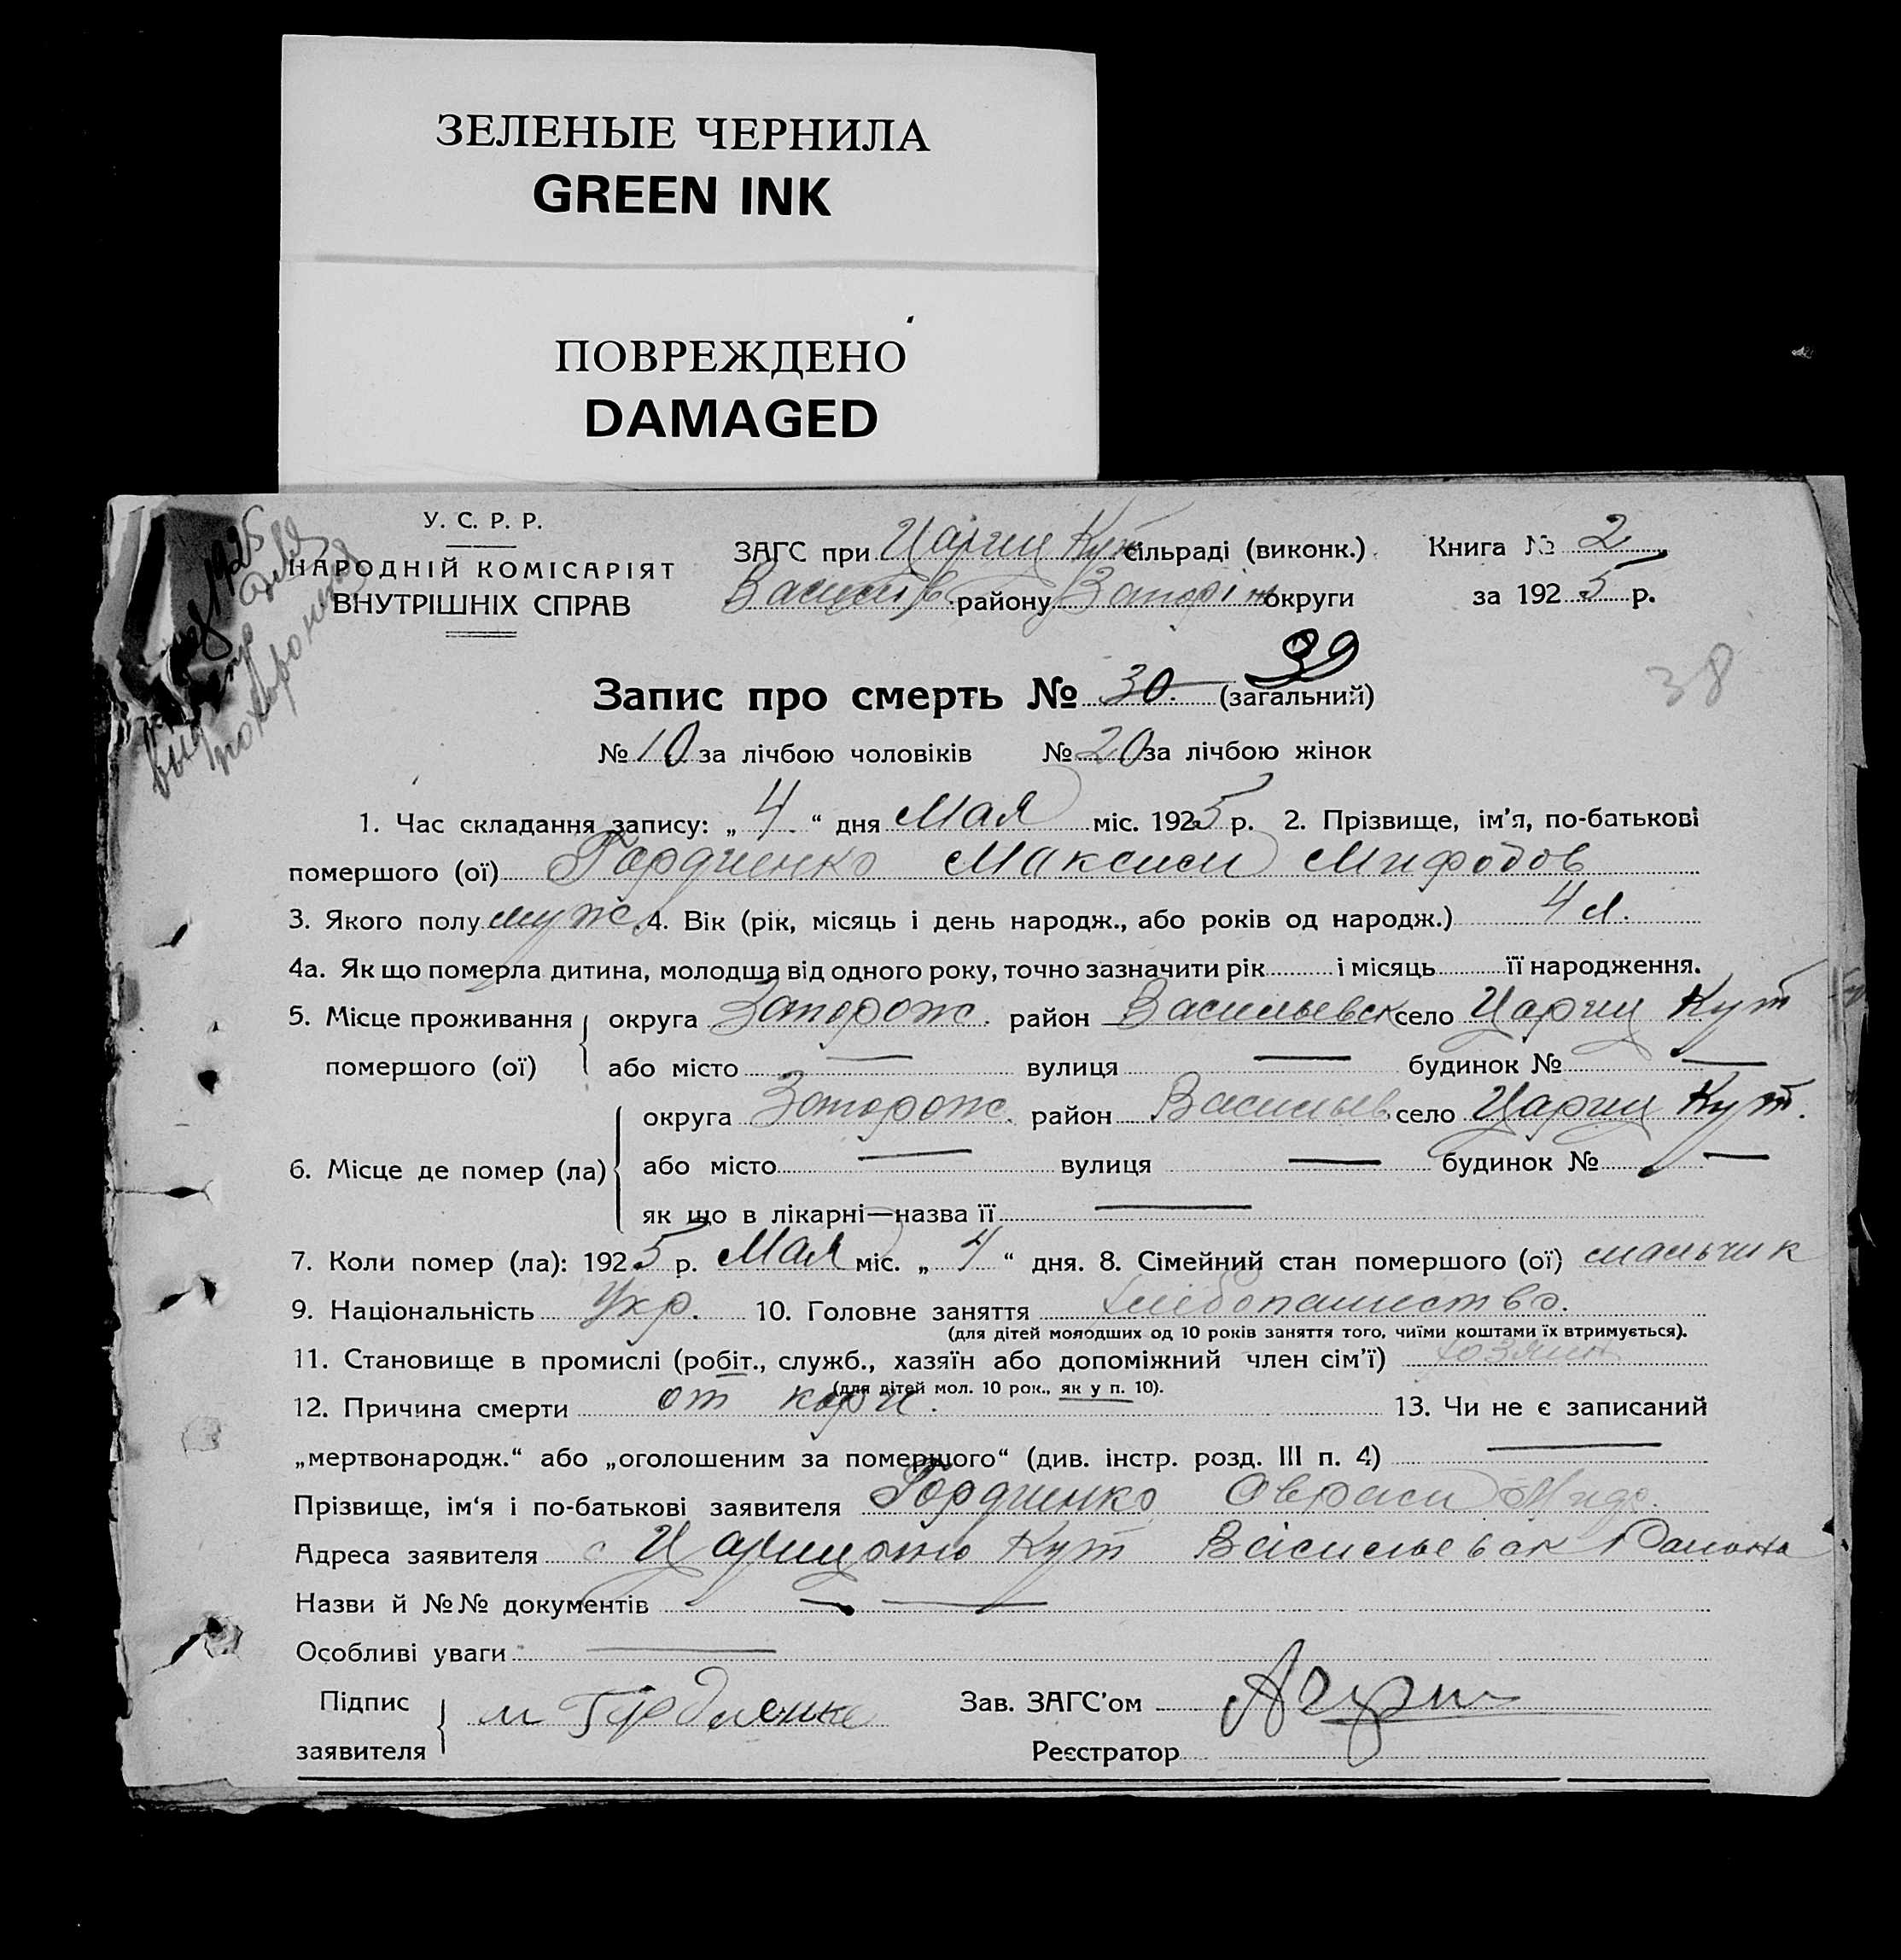 ЗЕЛЕНЫЕ ЧЕРНИЛА
GREEN INK
ПОВРЕЖДЕНО
DAMAGED
У. С. Р. Р.
НАРОДНІЙ КОМІСАРІЯТ
ВНУТРІШНІХ СПРАВ
1925
похоронную
ЗАГС при Цариц Кут сільраді (виконк.)
Василів. району Запоріж округи
Книга № 2
за 1925 р.
38
39
Запис про смерть № 30. (загальний)
№ 10 за лічбою чоловіків № 20 за лічбою жінок
1. Час складання запису: „ 4 “ дня Мая міс. 1925 р. 2. Прізвище, ім’я, по-батькові
помершого (ої) Гордиенко Максим Мифодов
3. Якого полу муж. 4. Вік (рік, місяць і день народж., або років од народж.) 4 л.
4а. Як що померла дитина, молодша від одного року, точно зазначити рік і місяць її народження.
5. Місце проживання округа Запорож. район Васильевск село Цариц Кут
помершого (ої) або місто — вулиця — будинок № —
округа Запорож. район Васильев. село Цариц Кут.
6. Місце де помер (ла) або місто — вулиця — будинок № —
як що в лікарні—назва її —
7. Коли помер (ла): 1925 р. Мая міс. „ 4 “ дня. 8. Сімейний стан помершого (ої) мальчик
9. Національність Укр. 10. Головне заняття хлебопашество.
(для дітей молодших од 10 років заняття того, чиїми коштами їх втримується).
11. Становище в промислі (робіт., служб., хазяїн або допоміжний член сім’ї) хозяин
(для дітей мол. 10 рок., як у п. 10).
12. Причина смерти от кори. 13. Чи не є записаний
„мертвонародж.“ або „оголошеним за померщого“ (див. інстр. розд. III п. 4) —
Прізвище, ім‘я і по-батькові заявителя Гордиенко Аврам
Адреса заявителя с Царицыно Кут Васильевск Района
Назви й №№ документів —
Особливі уваги —
Підпис
заявителя м Гордиенко
Зав. ЗАГС’ом
Реєстратор